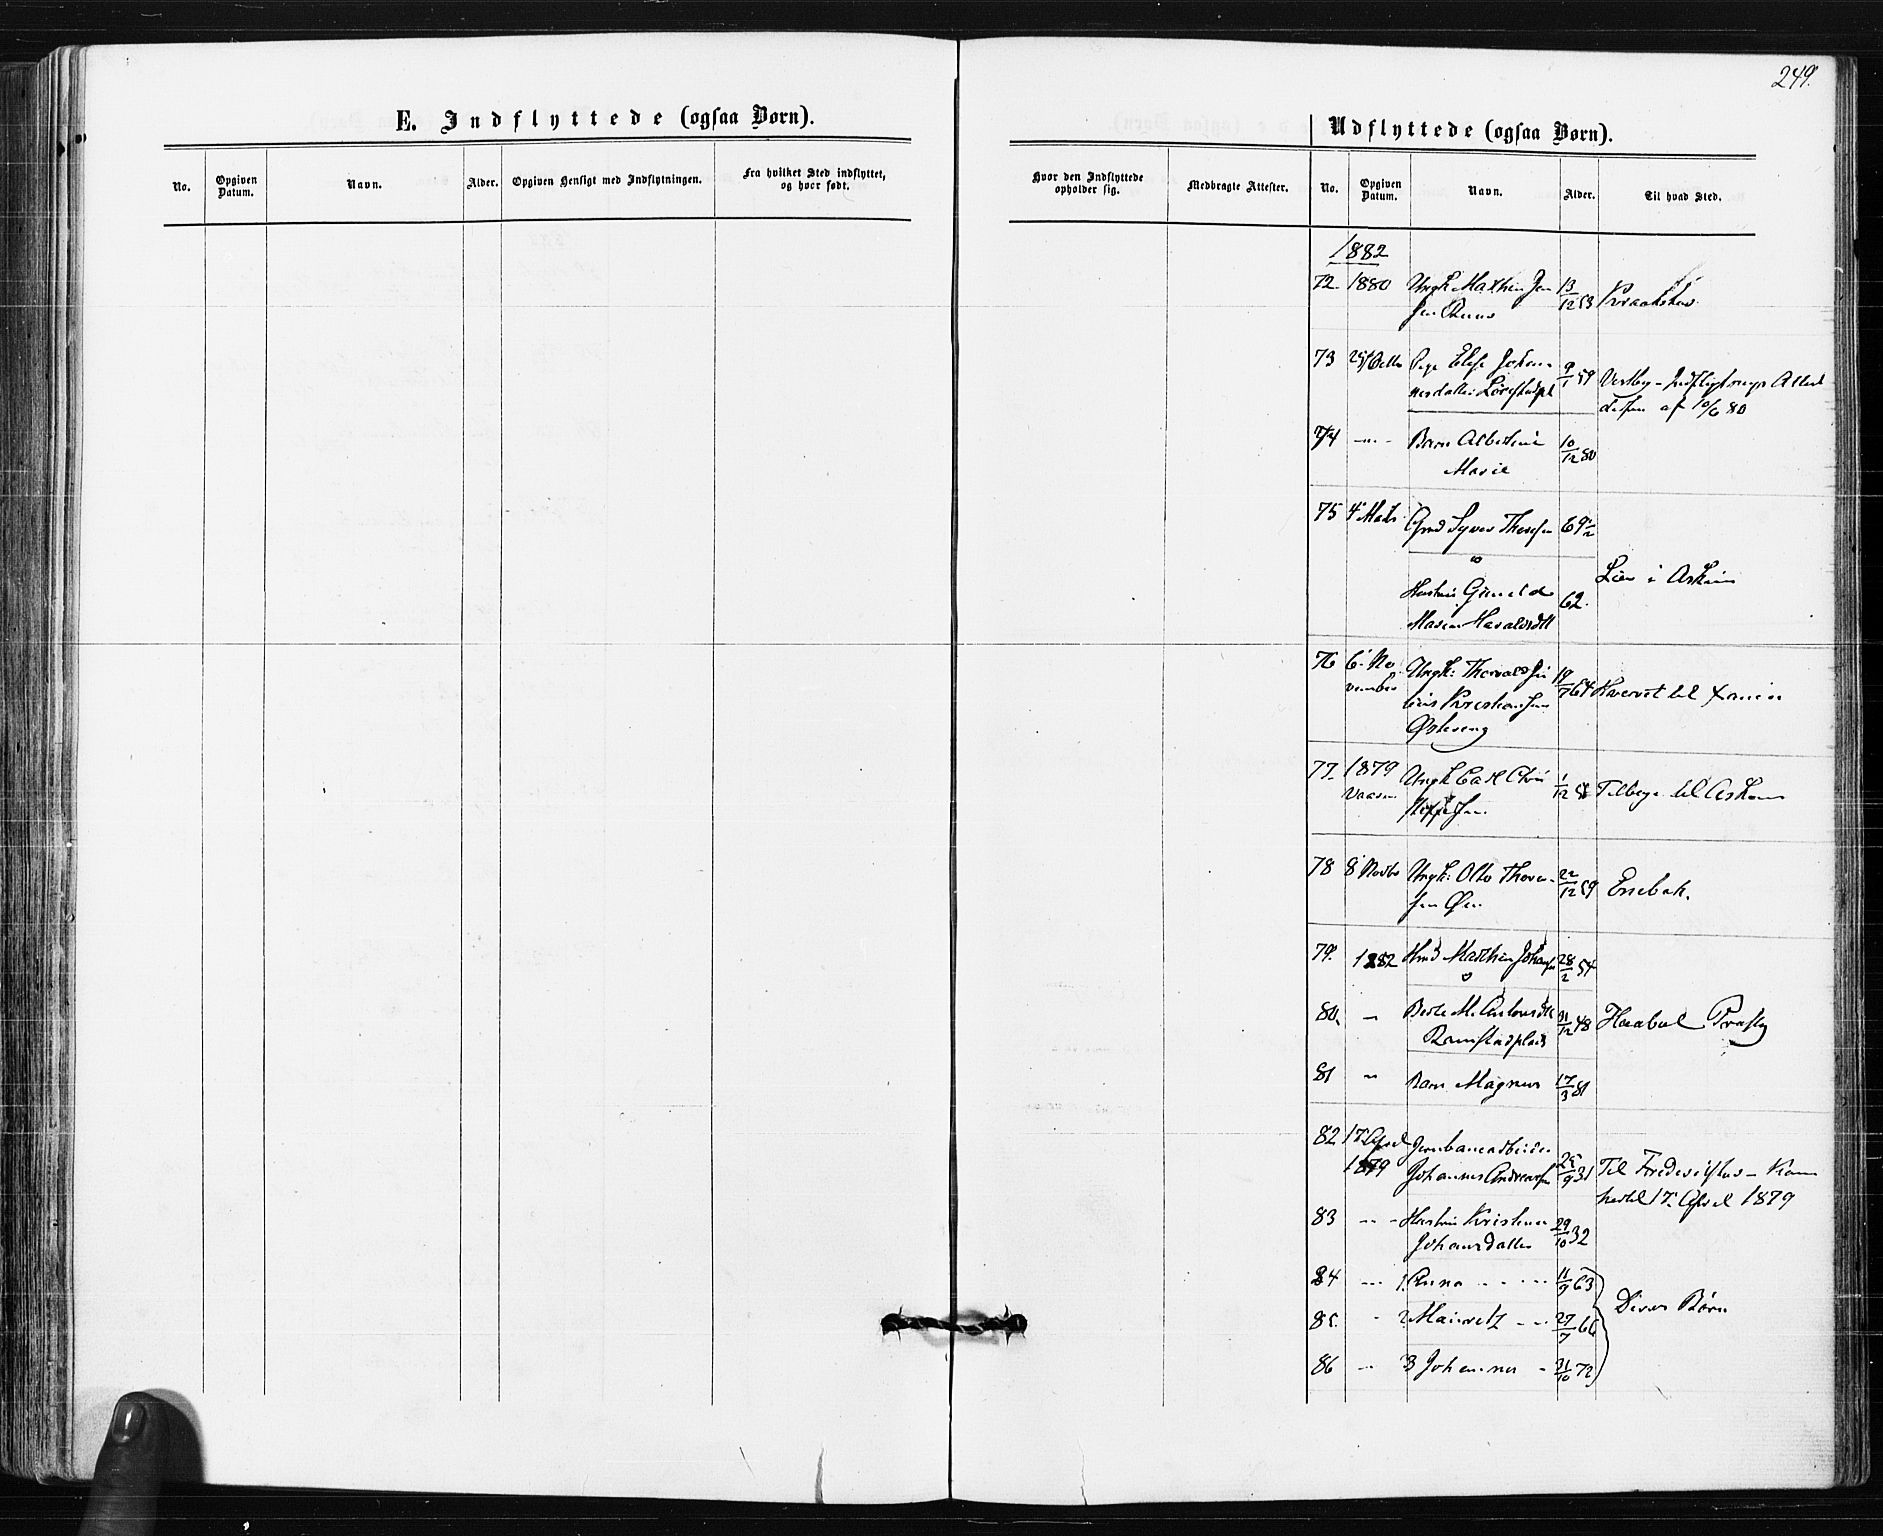 249.
E. Indflyttede (ogsaa Børn).
Udflyttede (ogsaa Børn).
No. Opgiven Datum. Navn. Alder. Opgiven Hensigt med Indflytningen. Fra hvilket Sted indflyttet, og hvor født.
Hvor den Indflyttede opholder sig. Medbragte Attester. No. Opgiven Datum. Navn. Alder. Til hvad Sted.
1882
72. 1880 Ungk. Mathis Jen 13/12 53 Kraakstad
sen
73 Pige Elise Johan 9/1 59 Vestby - Indflytnings Attest
nesdatter
af 10/6 80
74 -"- Barn Albertine 10/12 80
Marie
75 4 Gmd Syver Thoresen 69 1/2
o
Lien i Askim
Hustru Gunilde 62.
Maren Haralsdtt
76 6. No Ungk. Thorvald Ju 19/7 64 til
vember lius Kristiansen
Østereng
77. 1879 Ungk Carl Chri 1/12 til Askim
Vaaren stoffersen
78 8 Novbr Ungk. Otto Thore 22/12 59 Enebak.
sen Øren
79. 1882 Mathias Johansen 28/2 54
o
80. " Berte M. 31/12 48 Haabøl Præstg
Ramstadplads
81 " Barn Magnus 17/3 81
82 17. April Jernbanearbeider
1879 Johannes Andreassen 25/9 31 Til Frederikstad - Kom
hertil 17. April 1879
83 " - Hustru Kristine 29/10 32
Johansdatter
84 " 1. Anna - - - 11/9 63
Deres Børn
85. " 2 Mauritz - - 27/7 66
86 " 3 Johannes - 31/10 72